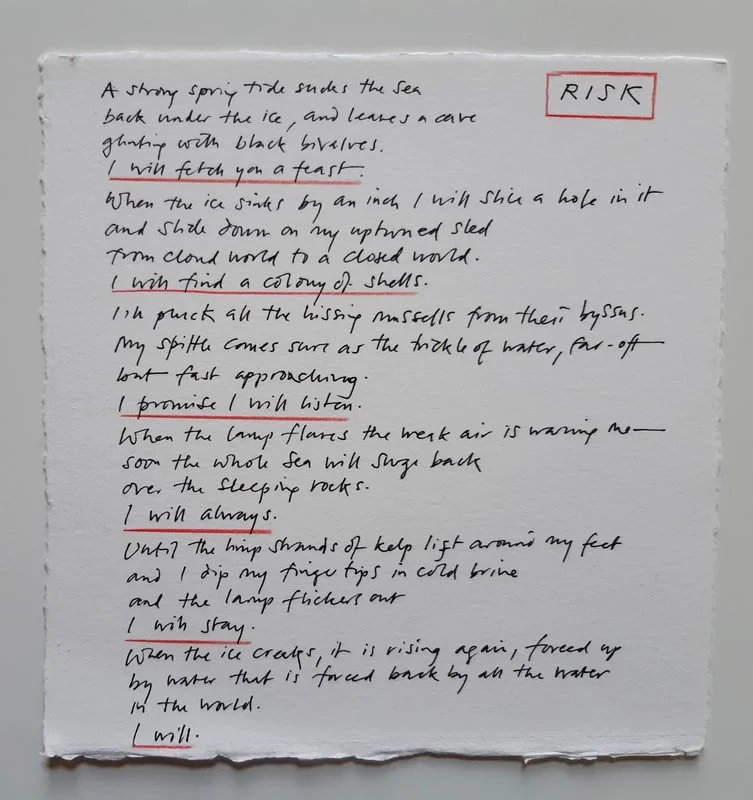 RISK
A strong spring tide sucks the sea
back under the ice, and leaves a cave
glinting with black bivalves.
I will fetch you a feast.
When the ice sinks by an inch I will slice a hole in it
and slide down on my upturned sled
from cloud world to a closed world.
I will find a colony of shells.
I'll pluck all the hissing mussells from their byssus.
My spittle comes sure as the trickle of water, far-off—
but fast approaching.
I promise I will listen.
When the lamp flares the weak air is warning me—
soon the whole sea will surge back
over the sleeping rocks.
I will always.
Until the limp strands of kelp lift around my feet
and I dip my finger tips in cold brine
and the lamp flickers out
I will stay.
When the ice creaks, it is rising again, forced up
by water that is forced back by all the water
in the world.
I will.